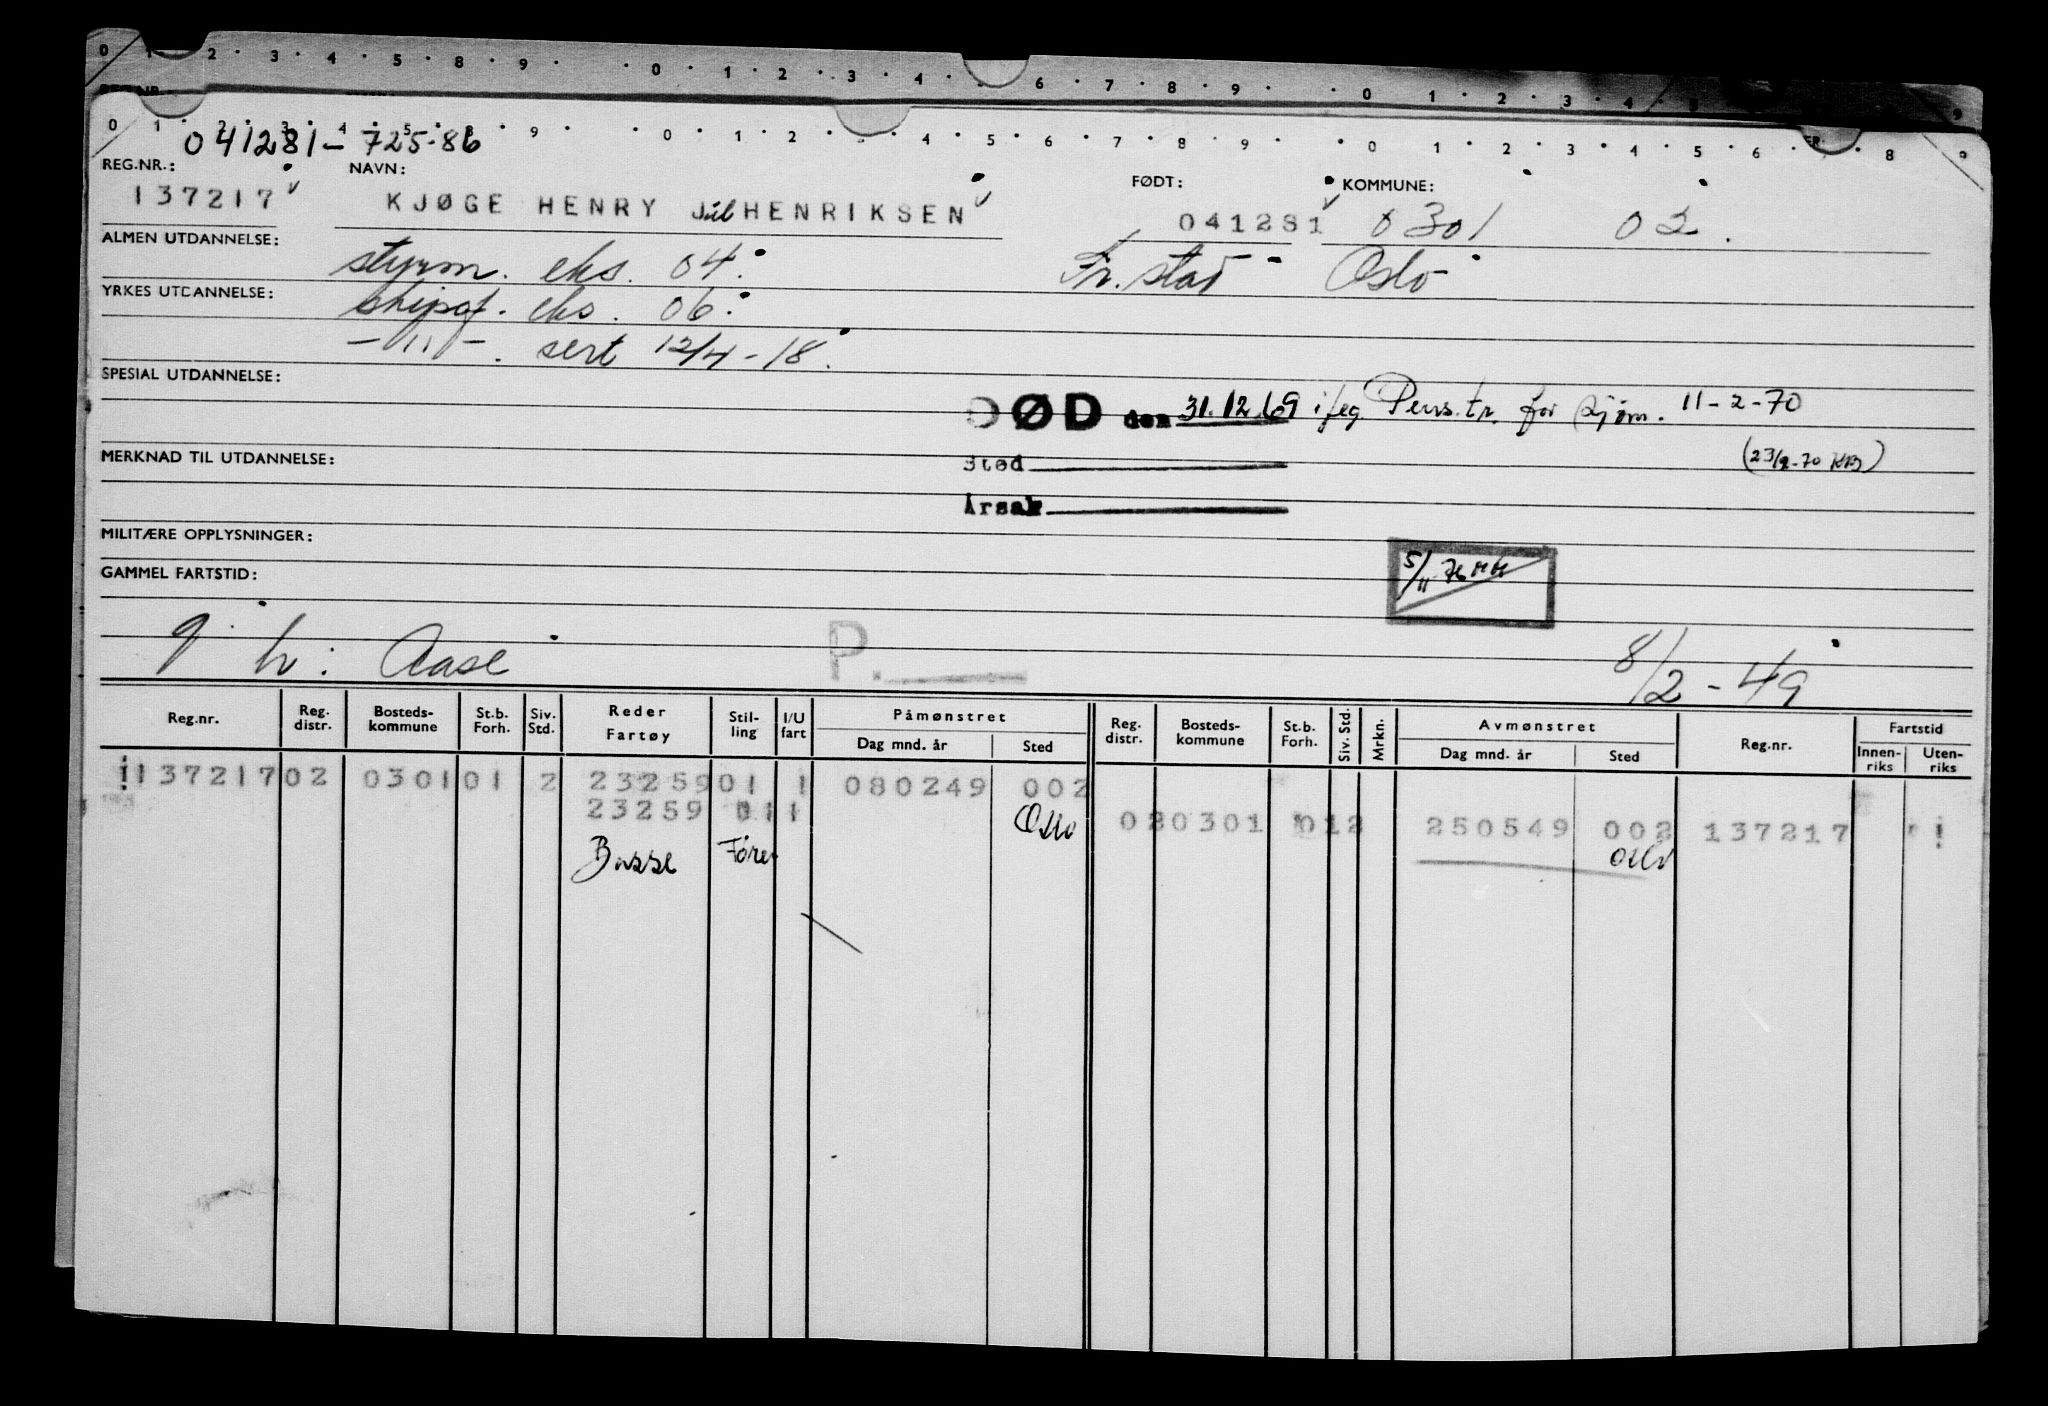 0 1 2 3 4 5 8 9 0 1 2 3 4 6 7 8 9 0 1 2 3 4 9
0 1 2 3 4 5 9 0 1 2 4 5 6 7 8 9 0 1 2 3 4 5 6 8 9
041281-725.86
REG.NR.: NAVN: FØDT: KOMMUNE:
137217 KJØGE HENRY HENRIKSEN 041281 0301 02.
ALMEN UTDANNELSE: styrm. eks. 04. Fr.stad Oslo
YRKES UTDANNELSE: skipsf. eks. 06.
-"- . sert 12/4-18.
SPESIAL UTDANNELSE:
DØD den 31.12.69 iføg Pens.tr. for sjøm. 11-2-70
MERKNAD TIL UTDANNELSE: Sted (23/2-70 KB)
Årsak
MILITÆRE OPPLYSNINGER:
GAMMEL FARTSTID: 5/11
g. h: Aase P. 8/2-49
Reg.nr. Reg. distr. Bosteds-kommune St.b. Forh. Siv. Std. Reder Fartøy Stil-ling I/U fart Påmønstret Dag mnd. år Sted Reg. distr. Bosteds-kommune St.b. Forh. Siv. Std. Mrkn. Avmønstret Dag mnd. år Sted Reg.nr. Fartstid Innen-riks Uten-riks
137217 02 0301 01 2 23259 01 1 080249 002
23259 011 Oslo 020301 012 250549 002 137217
Basse Fører Oslo